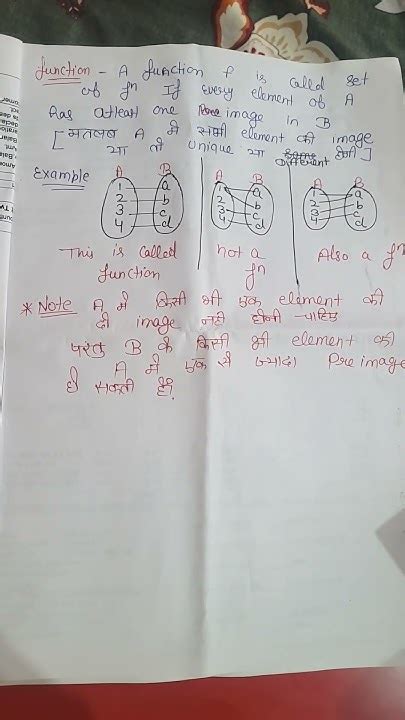 function - A function f is called set
of fn If every element of A
has atleast one image in B
[ मतलब A में सभी element की image
या तो unique या different होगी ]
Example
A B
1 a
2 b
3 c
4 d
A B
1 a
2 b
3 c
4 d
A B
1 a
2 b
3 c
4 d
This is called
function
not a
fn
Also a fn
* Note A में किसी भी एक element की
दो image नहीं होनी चाहिए
परंतु B के किसी भी element की
A में एक से ज्यादा Pre image
हो सकती हैं.